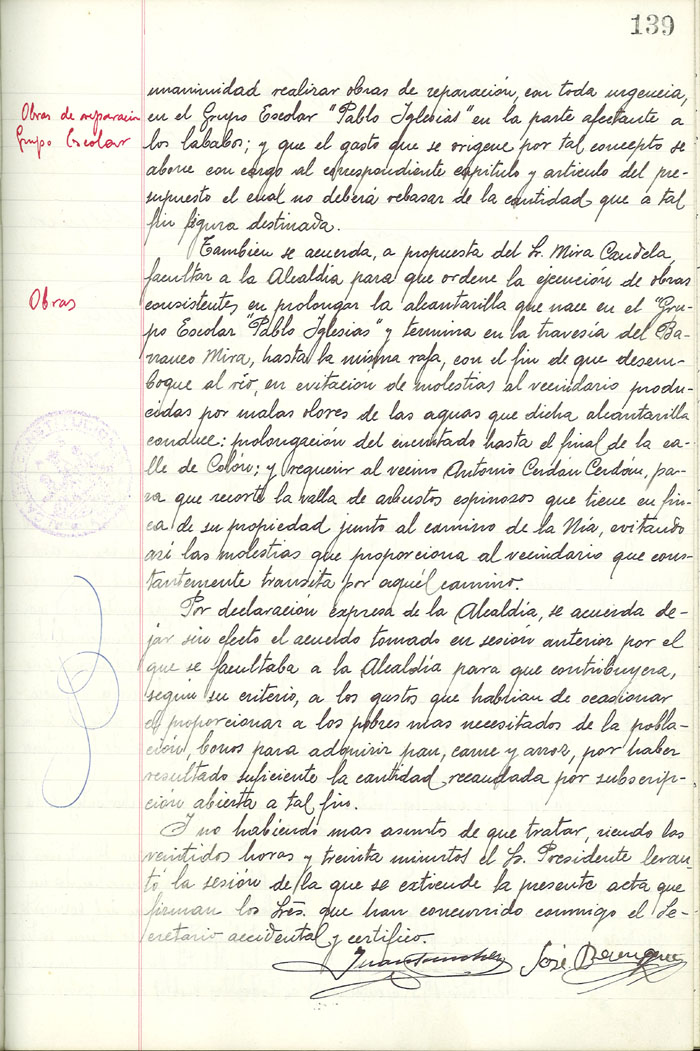 139
unanimidad realizar obras de reparación, con toda urgencia,
Obras de reparación
Grupo Escolar
en el Grupo Escolar "Pablo Iglesias" en la parte afectante a
los lababos; y que el gasto que se origene por tal concepto se
abone con cargo al correspondiente capitulo y articulo del pre-
supuesto el cual no deberá rebasar de la cantidad que a tal
fin figura destinada.
Tambien se acuerda, a propuesta del Sr. Mira Candela,
facultar a la Alcaldia para que ordene la ejecución de obras
Obras
consistentes en prolongar la alcantarilla que nace en el "Gru-
po Escolar "Pablo Iglesias" y termina en la travesía del Ba-
rranco Mira, hasta la misma rafa, con el fin de que desem-
boque al río, en evitacion de molestias al vecindario produ-
cidas por malos olores de las aguas que dicha alcantarilla
conduce: prolongación del encintado hasta el final de la ca-
lle de Colón; y requerir al vecino Antonio Cerdán Cerdán, pa-
ra que recorte la valla de arbustos espinosos que tiene en fin-
ca de su propiedad junto al camino de la Nía, evitando
así las molestias que proporciona al vecindario que cons-
tantemente transita por aquél camino.
Por declaración expresa de la Alcaldia, se acuerda de-
jar sin efecto el acuerdo tomado en sesión anterior por el
que se facultaba a la Alcaldía para que contribuyera,
según su criterio, a los gastos que habrian de ocasionar
el proporcionar a los pobres mas necesitados de la pobla-
ción, bonos para adquirir pan, carne y arroz, por haber
resultado suficiente la cantidad recaudada por subscrip-
ción abierta a tal fin.
Y no habiendo mas asuntos de que tratar, siendo las
veintidos horas y treinta minutos el Sr. Presidente levan-
tó la sesión de la que se extiende la presente acta que
firman los Srês. que han concurrido conmigo el Se-
cretario accidental y certifico.
José Berenguer